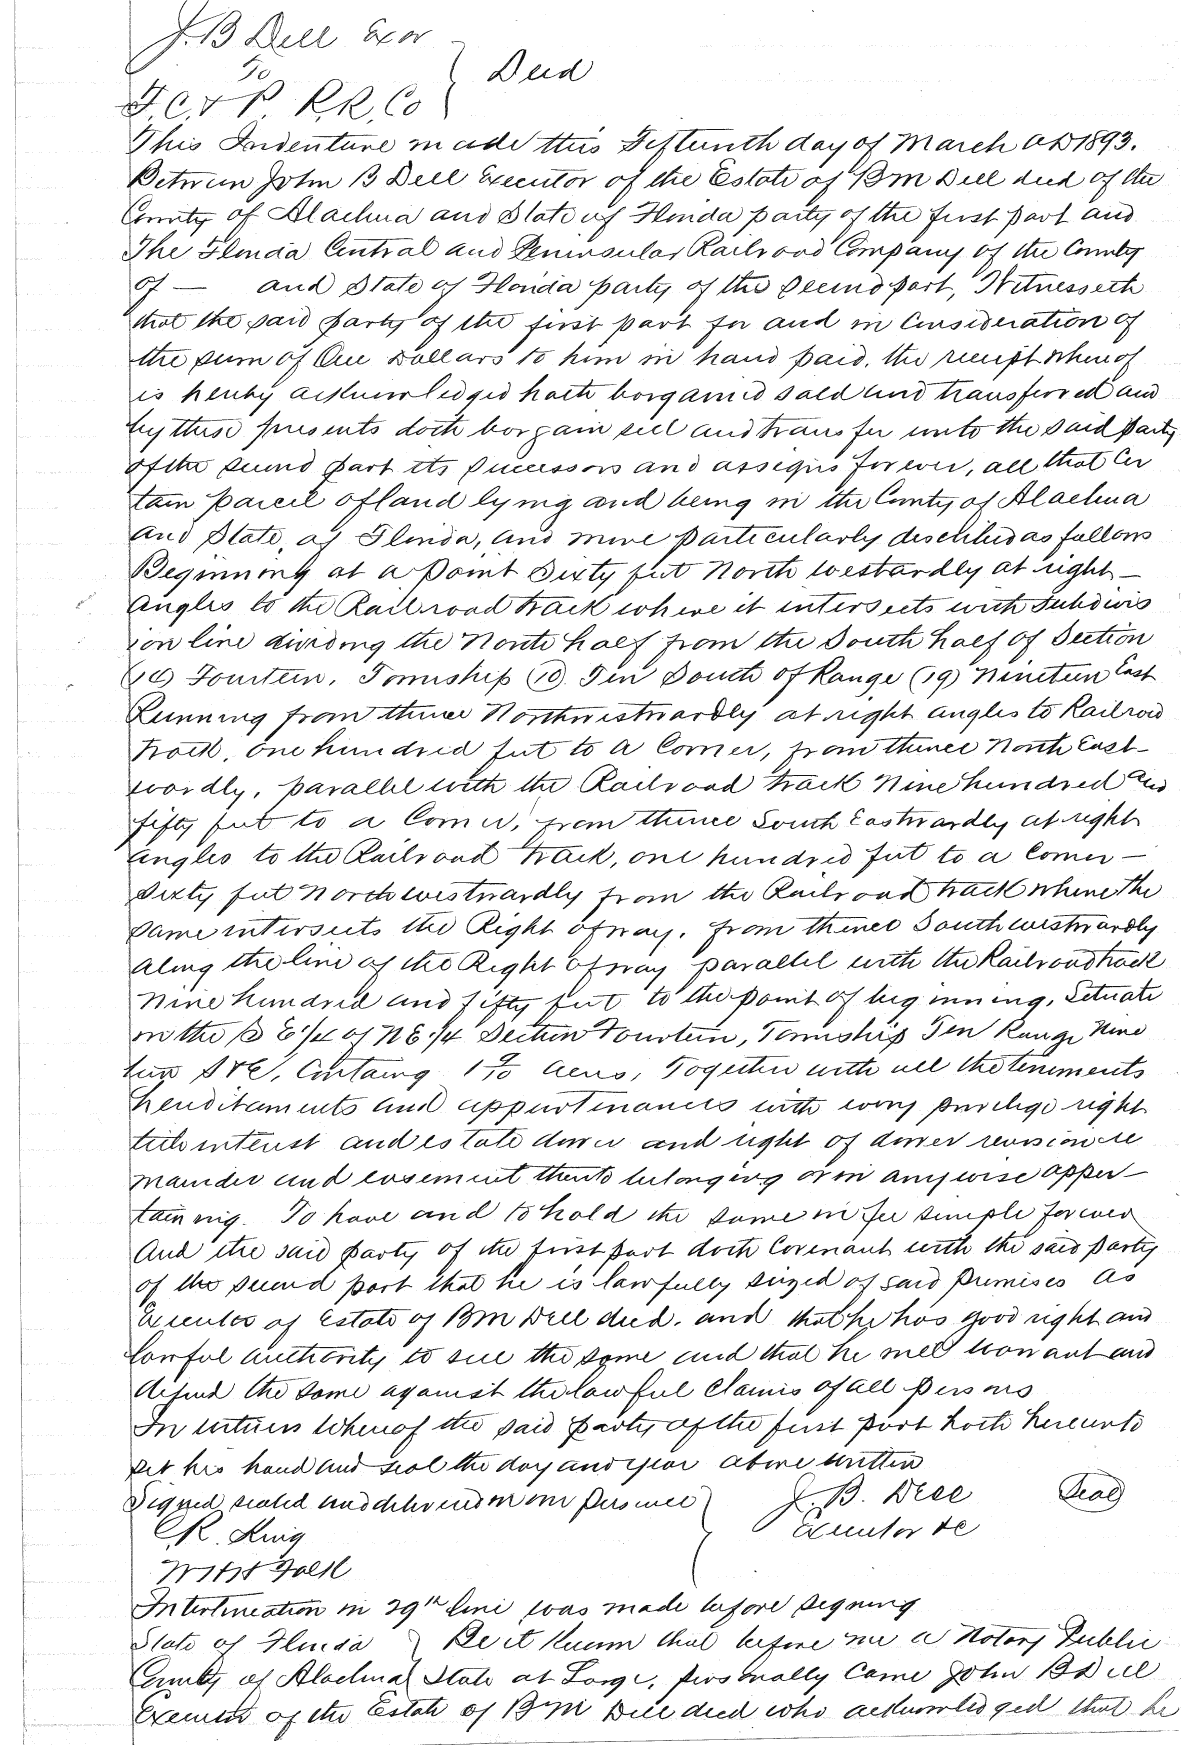 J. B Dell Exor
to
F. C. & P. R.R. Co
Deed
This Indenture made this Fifteenth day of March AD 1893.
Between John B Dell Executor of the Estate of B M Dell decd of the
County of Alachua and State of Florida party of the first part and
The Florida Central and Peninsular Railroad Company of the County
of — and State of Florida party of the second part, Witnesseth
that the said party of the first part for and in Consideration of
the sum of One Dollars to him in hand paid, the receipt whereof
is hereby acknowledged hath bargained sold and transferred and
by these presents doth bargain sell and transfer unto the said party
of the second part its successors and assigns forever, all that Cer
tain parcel of land lying and being in the County of Alachua
and State, of Florida, and more particularly described as follows
Beginning at a point Sixty feet North westardly at right —
angles to the Railroad track where it intersects with Subdivis
ion line dividing the North half from the South half of Section
(14) Fourteen, Township (10) Ten South of Range (19) Nineteen East
Running from thence Northwestwardly at right angles to Railroad
track, one hundred feet to a Corner, from thence North East-
wardly, parallel with the Railroad track Nine hundred and
fifty feet to a Corner, from thence South Eastwardly at right
angles to the Railroad track, one hundred feet to a Corner —
Sixty feet Northwestwardly from the Railroad track where the
same intersects the Right of way, from thence Southwestwardly
along the line of the Right of way parallel with the Railroad track
Nine hundred and fifty feet to the point of beginning, Situate
in the S E 1/4 of N E 1/4 Section Fourteen, Township Ten Range Nine
teen S & E, Containg Acres, Together with all the tenements
hereditaments and appurtenances with every privilege right
title interest and estate dower and right of dower revision re
mainder and easement thereto belonging or in anywise apper-
taining. To have and to hold the same in fee simple forever
And the said party of the first part doth Covenant with the said party
of the second part that he is lawfully siezed of said premises as
Executor of Estate of B M Dell decd. and that he has good right and
lawful authority to sell the same and that he will warrant and
defend the same against the lawful Claims of all persons
In witness whereof the said party of the first part hath hereunto
set his hand and seal the day and year above written
Signed sealed and delivered in our presence J. B. Dell Seal
R. King Executor &c
Interlineation in 29th line was made before signing
State of Florida Be it known that before me a Notary Public
County of Alachua State at Large, personally came John B Dell
Executor of the Estate of B M Dell decd who acknowledged that he